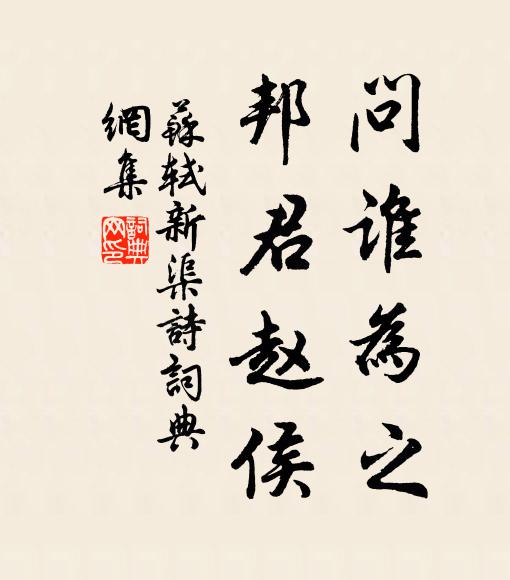 問誰為之
邦君赵侯
蘇軾新渠詩詞典
網集
詞典
网印